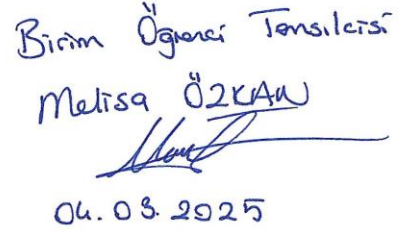 Birim Öğrenci Temsilcisi
Melisa ÖZKAN
04.03.2025